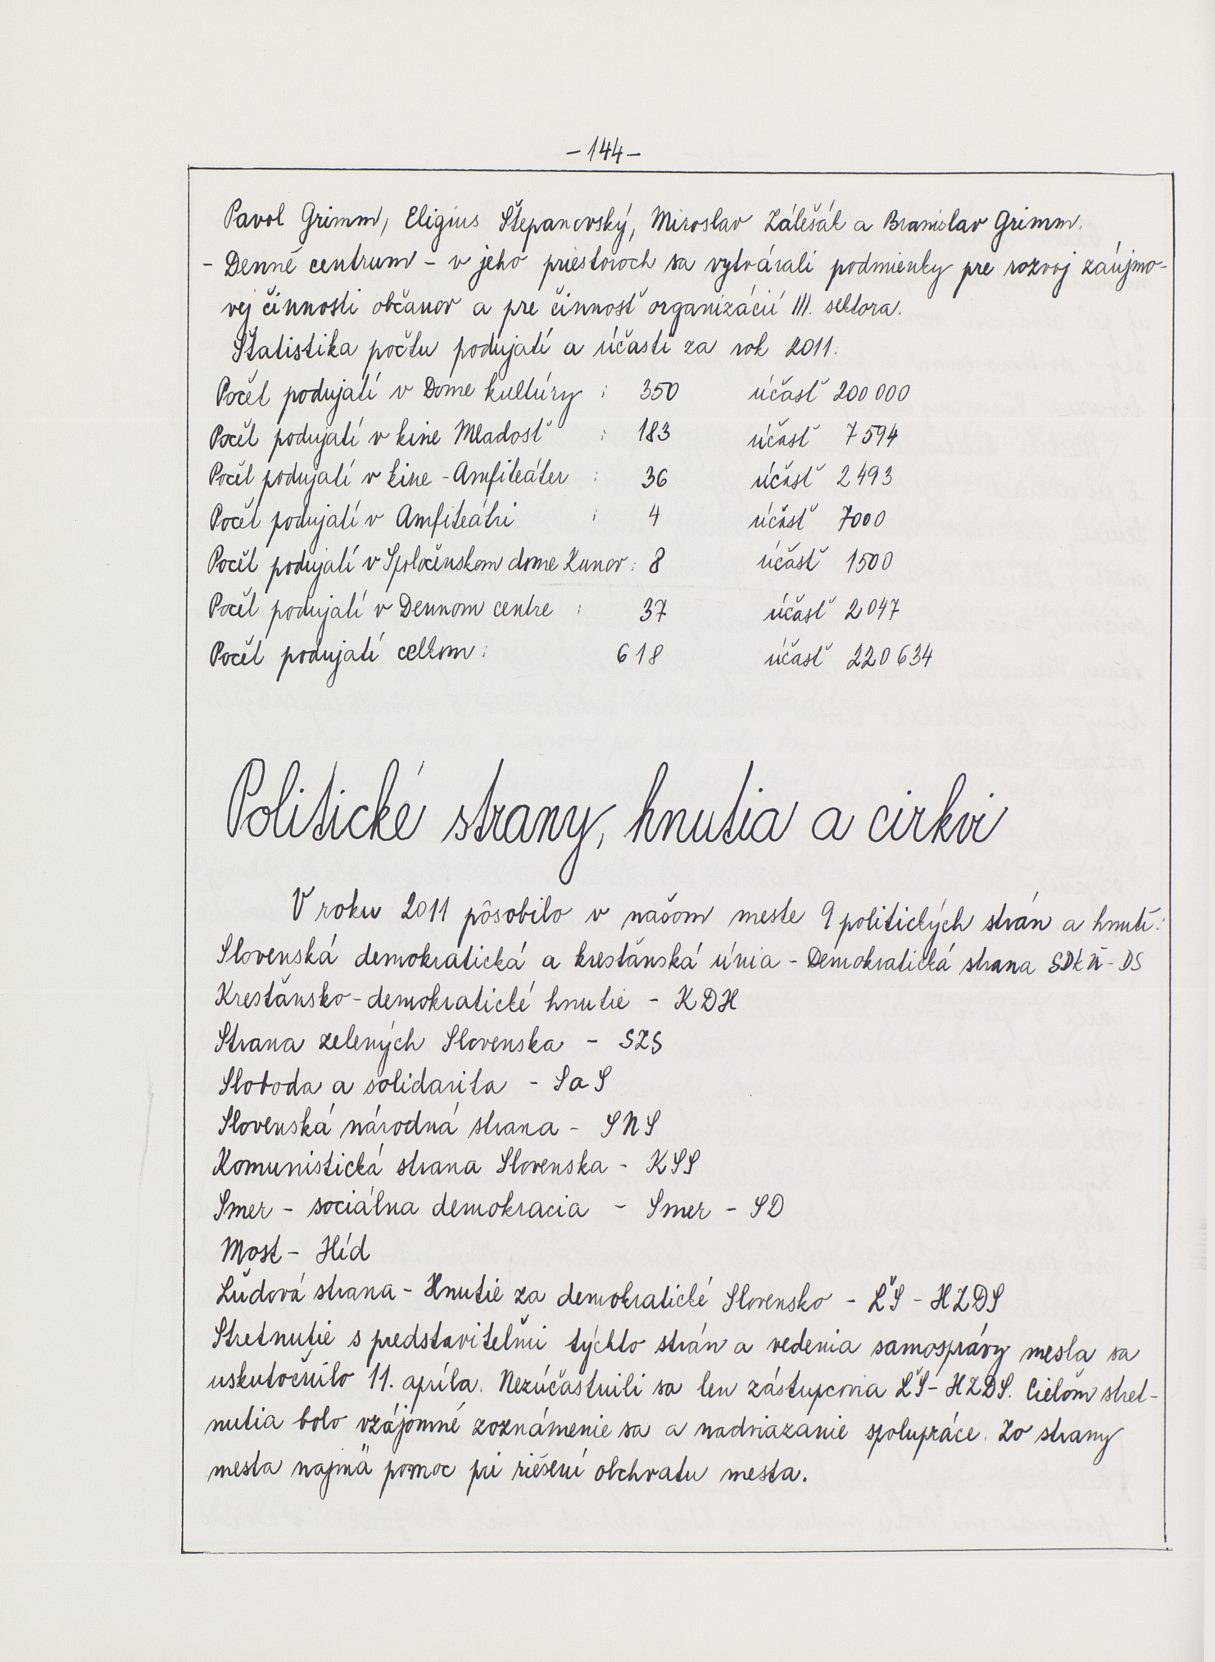 -144-
Pavol Grimm, Eligius Štepanovský, Miroslav Zálešák a Branislav Grimm.
- Denné centrum - v jeho priestoroch sa vytvárali podmienky pre rozvoj záujmo-
vej činnosti občanov a pre činnosť organizácií III. sektora.
Štatistika počtu podujatí a účasti za rok 2011:
Počet podujatí v Dome kultúry : 350 účasť 200 000
Počet podujatí v kine Mladosť : 183 účasť 7594
Počet podujatí v kine - Amfiteáter : 36 účasť 2493
Počet podujatí v Amfiteátri : 4 účasť 7000
Počet podujatí v Spoločenskom dome Kunov : 8 účasť 1500
Počet podujatí v Dennom centre : 37 účasť 2047
Počet podujatí celkom : 618 účasť 220 634
Politické strany, hnutia a cirkvi
V roku 2011 pôsobilo v našom meste 9 politických strán a hnutí:
Slovenská demokratická a kresťanská únia - Demokratická strana SDKÚ - DS
Kresťansko - demokratické hnutie - KDH
Strana zelených Slovenska - SZS
Sloboda a solidarita - SaS
Slovenská národná strana - SNS
Komunistická strana Slovenska - KSS
Smer - sociálna demokracia - Smer - SD
Most - Híd
Ľudová strana - Hnutie za demokratické Slovensko - ĽS - HZDS
Stretnutie s predstaviteľmi týchto strán a vedenia samosprávy mesta sa
uskutočnilo 11. apríla. Nezúčastnili sa len zástupcovia ĽS - HZDS. Cieľom stret-
nutia bolo vzájomné zoznámenie sa a nadviazanie spolupráce. Zo strany
mesta najmä pomoc pri riešení obchvatu mesta.